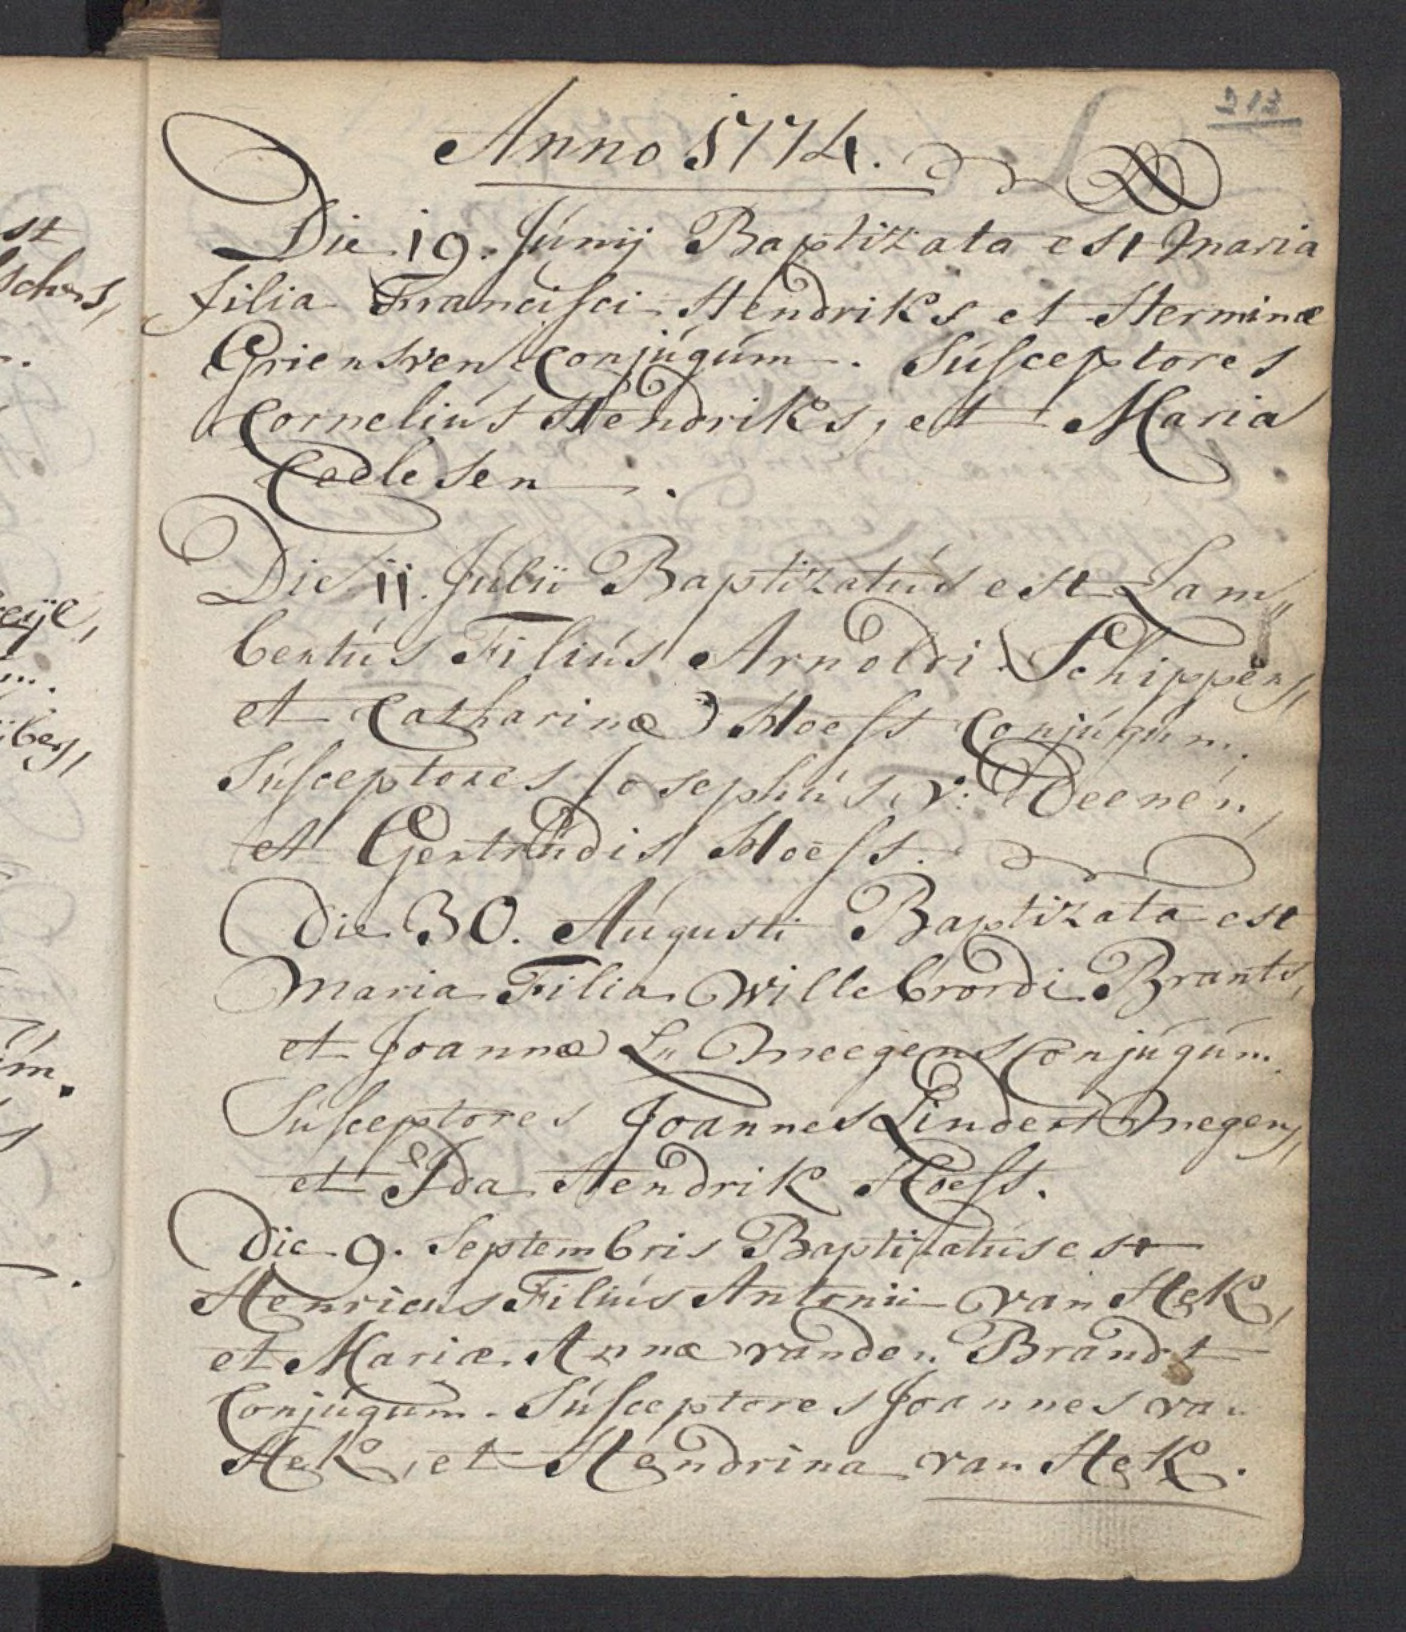 213
Anno 1774.
Die 19. Júnij Baptizata est Maria
filia Francisci Hendriks et Herminæ
Griensven Conjúgúm. Súsceptores
Corneliús Hendriks, et Maria
Ceelesen.
Die 11. Julii Baptizatús est Lam„
bertús Filiús Arnoldi Schippers,
et Catharinæ Hoefs Conjúgúm.
Súsceptores Josephús v: Deenen,
et Gertrúdis Hoefs.
Die 30. Aúgusti Baptizata est
Maria Filia Willebrordi Brants,
et Joannæ L„ Meegens Conjúgúm.
Súsceptores Joannes Lindert Megens,
et Ida Hendrik Hoefs.
Die 9. Septembris Baptizatús est
Henricus Filiús Antonii van Hek,
et Mariæ Annæ vanden Brandt
Conjúgum. Súsceptores Joannes van
Hek, et Hendrina van Hek.